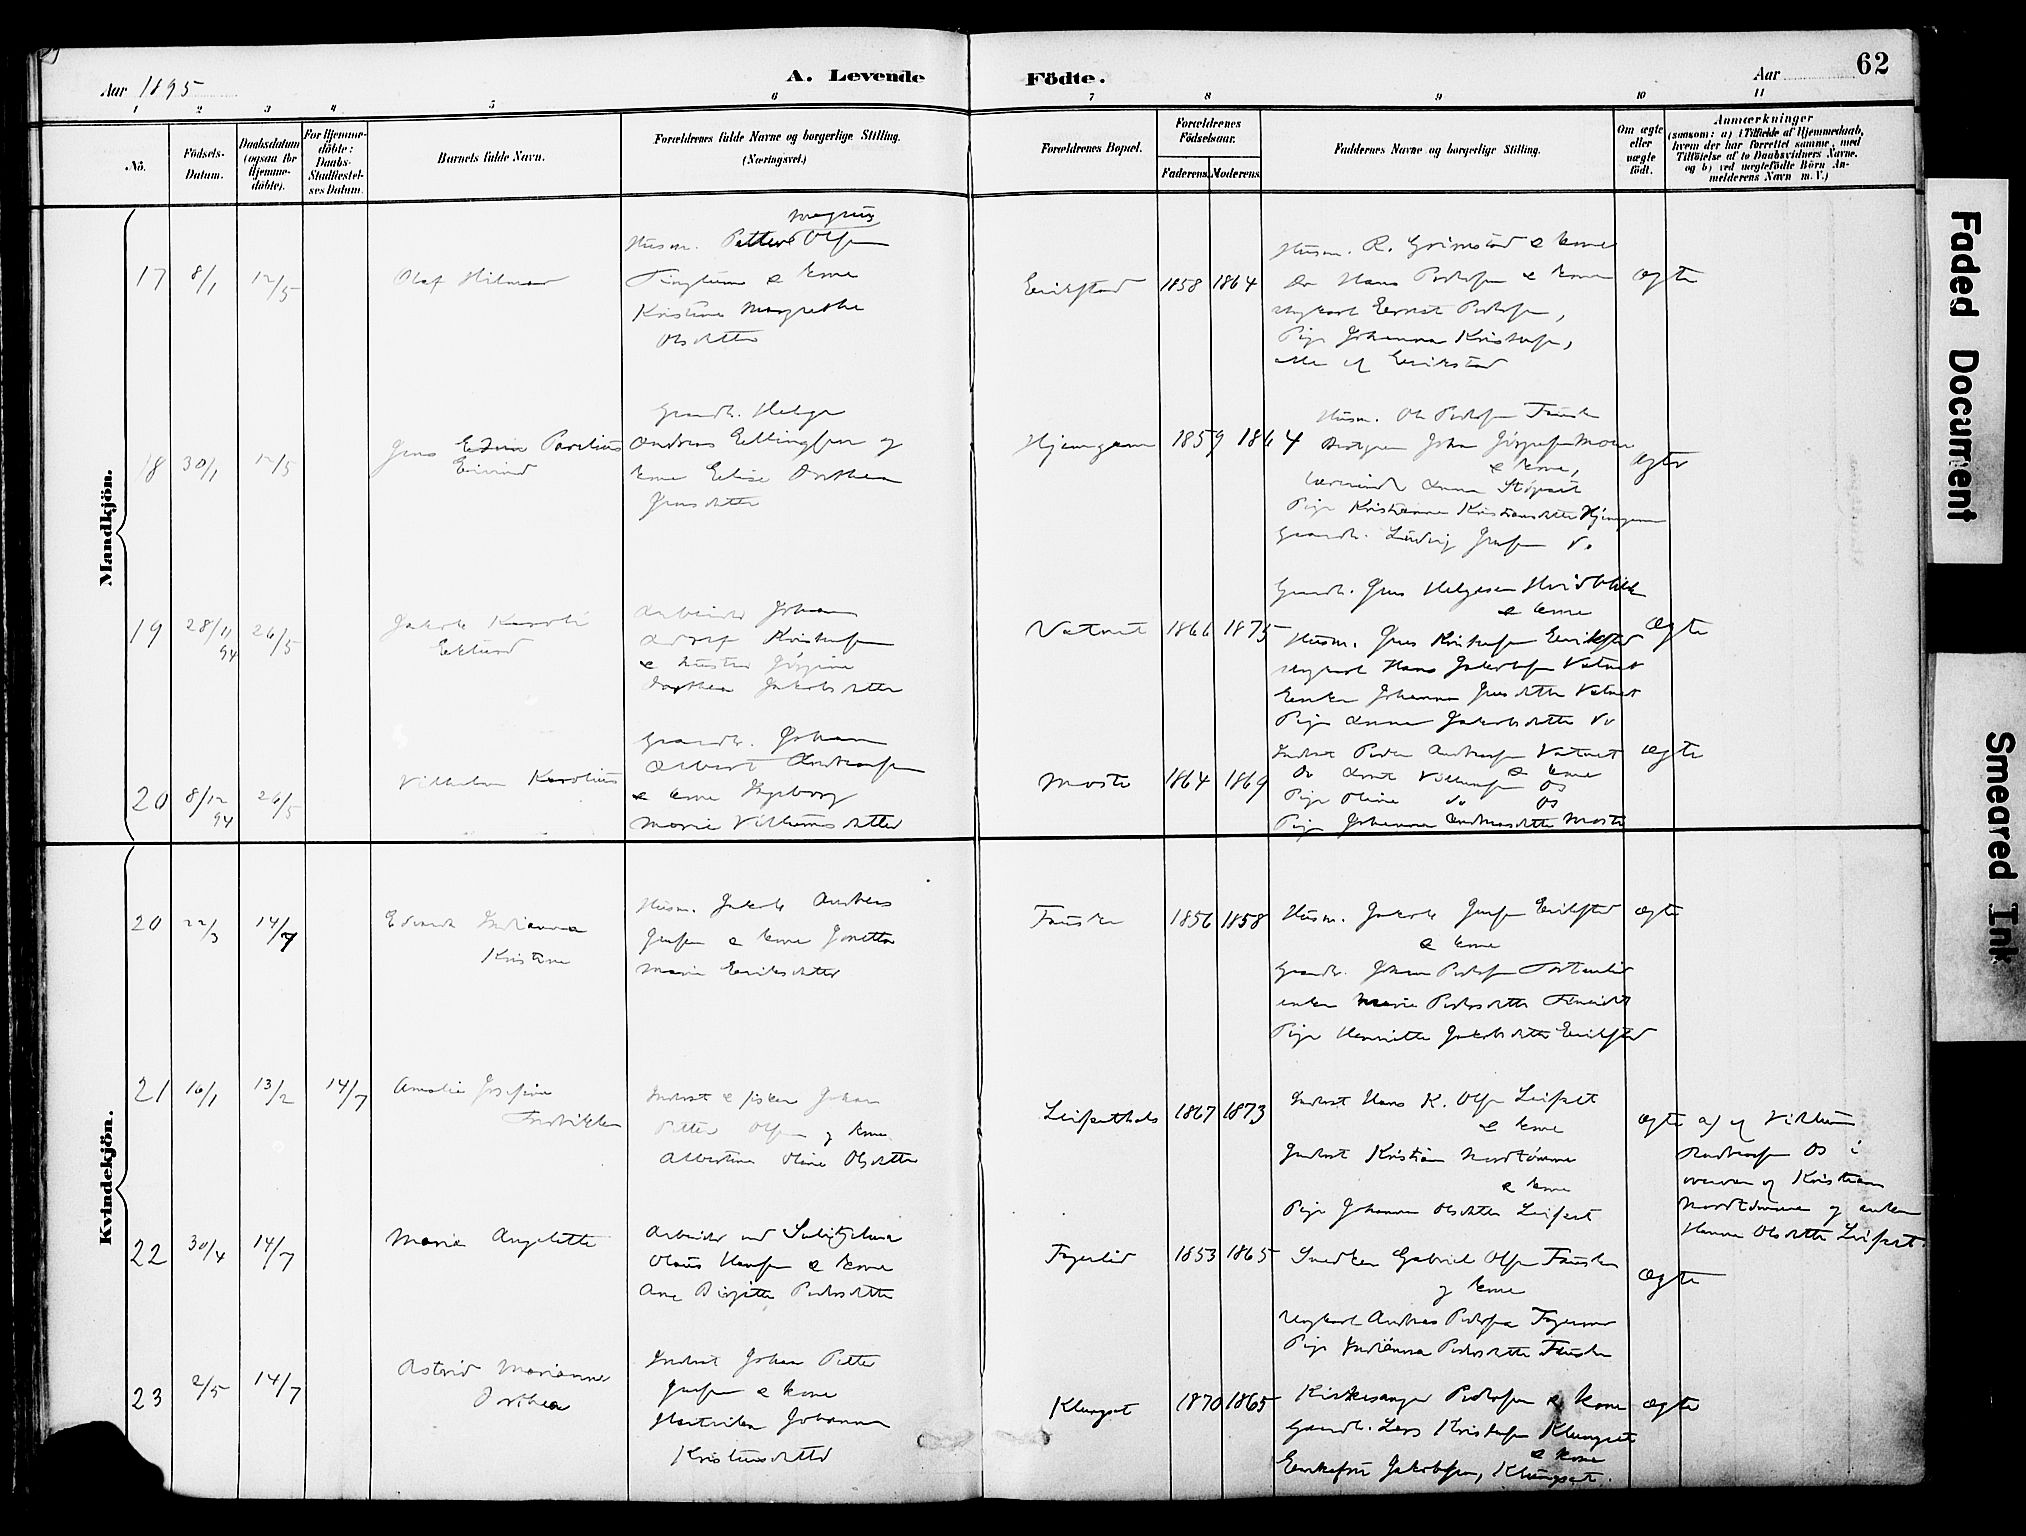 62
Aar 1895
A. Levende Födte.
Aar
1 2 3 4 5 6 7 8 9 10 11
No.
Födsels-Datum.
Daabsdatum (ogsaa for Hjemmedöbte).
For Hjemmedöbte: Daabs-Stadfæstelses Datum.
Barnets fulde Navn.
Forældrenes fulde Navne og borgerlige Stilling. (Næringsvei.)
Forældrenes Bopæl.
Forældrenes Födselsaar.
Faderens. Moderens.
Faddernes Navne og borgerlige Stilling.
Om ægte eller uægte födt.
Anmærkninger
(saasom: a) i Tilfælde af Hjemmedaab,
hvem der har forrettet samme, med
Tilföielse af to Daabsvidners Navne,
og b) ved uægtefödte Börn An-
melderens Navn m. V.)
Mandkjön.
17 8/1 12/5
Olaf Hilmar
Magnus
Husm. Petter Olsen
& Kone
Kristine Margrethe
Olsdatter
Erikstad 1858 1864
Husm. R. Grimstad & Kone
Do Hans Pedersen & Kone
Ungkarl Ernst Pedersen,
Pige Johanna Kristofs,
alle af Erikstad
Ægte
18 30/1 12/5
Jens Edvin Parelius
Eivind
Gaardb. Helge
Andreas Ellingsen og
Kone Elise Dorthea
Jensdatter
Hjemgam 1859 1864
Husm. Ole Pedersen Fauske
Johan Jörgensen Moen
& Kone,
Anna Stöpset
Pige Kristianna Kristiansdatter Hjemgam
Gaardb. Ludvig Jensen Do
Ægte
19 28/11 94 26/5
Jakob
Eklund
Arbeider Johan
Adolf Kristofersen
& Hustru Jörgine
Dorthea Jakobsdatter
Vatnet 1866 1875
Gaardb. Jens Helgesen Hvidblik
& Kone
Husm. Jens Kristofersen Erikstad
Ungkarl Hans Jakobsen Vatnet
Enken Johanna Jensdatter Vatnet
Pige Anna Jakobsdatter Do
Ægte
20 8/12 94 26/5
Vilhelm Karolius
Gaardb. Johan
Albert Andreassen
& Kone Ingeborg
Marie Vilhelmsdatter
Moste 1864 1869
Inderst Peder Andreassen Vatnet
& Kone
Do Arnt Vilhelmsen Os
Pige Oline do Os
Pige Johanna Andreasdatter Moste
Ægte
Kvindekjön.
20 22/3 14/7
Edvarda Indianna
Kristine
Husm. Jakob Anders
Jensen & Kone Jonetta
Marie Eriksdatter
Fauske 1856 1858
Husm. Jakob Jensen Erikstad
& Kone
Gaardb. Johan Pedersen
Enken Marie Pedersdatter
Pige Henriette Jakobsdatter Erikstad
Ægte
21 16/1 13/2 14/7
Amalie Josefine
Fredrikke
Inderst & fisker Johan
Petter Olsen og Kone
Albertine Oline Olsdatter
1867 1873
Inderst Hans K. Olsen Leifset
& Kone
Inderst Kristian Nordtömme
& Kone
Pige Johanna Olsdatter Leifset
Ægte
a) af Vilhelm
Andreassen Os i
overvær af Kristian
Nordtömme og enken
Hanna Olsdatter Leifset.
22 30/4 14/7
Marie Angelette
Arbeider ved Sulitjelma
Olaus Hansen & Kone
Ane Birgitte Pedersdatter
Fagerlid 1853 1865
Snedker Gabriel Olsen Fauske
og Kone
Ungkarl Andreas Pedersen
Pige Indianna Pedersdatter Fauske
Ægte
23 2/5 14/7
Astrid Marianne
Dorthea
Inderst Johan Petter
Jensen & Kone
Johanna
Kristensdatter
Klungset 1870 1865
Kirkesanger Pedersen & Kone
Gaardb. Lars Kristofersen Klungset
& Kone
Jakobsen, Klungset.
Ægte
Faded Document
Smeared Ink